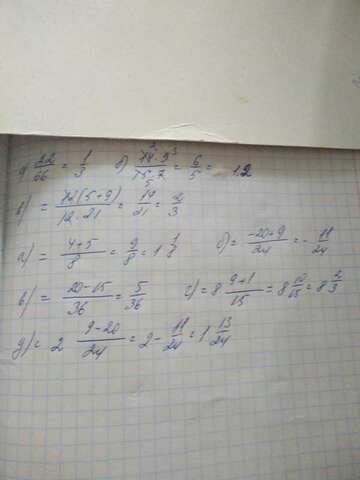 а) 22/66 = 1/3 б) 14·9/15·7 = 6/5 = 1,2
в) = 12(5+9)/12·21 = 14/21 = 2/3
а) = 4+5/8 = 9/8 = 1 1/8 б) = -20+9/24 = - 11/24
в) = 20-15/36 = 5/36 г) = 8 9+1/15 = 8 10/15 = 8 2/3
д) = 2 9-20/24 = 2 - 11/24 = 1 13/24